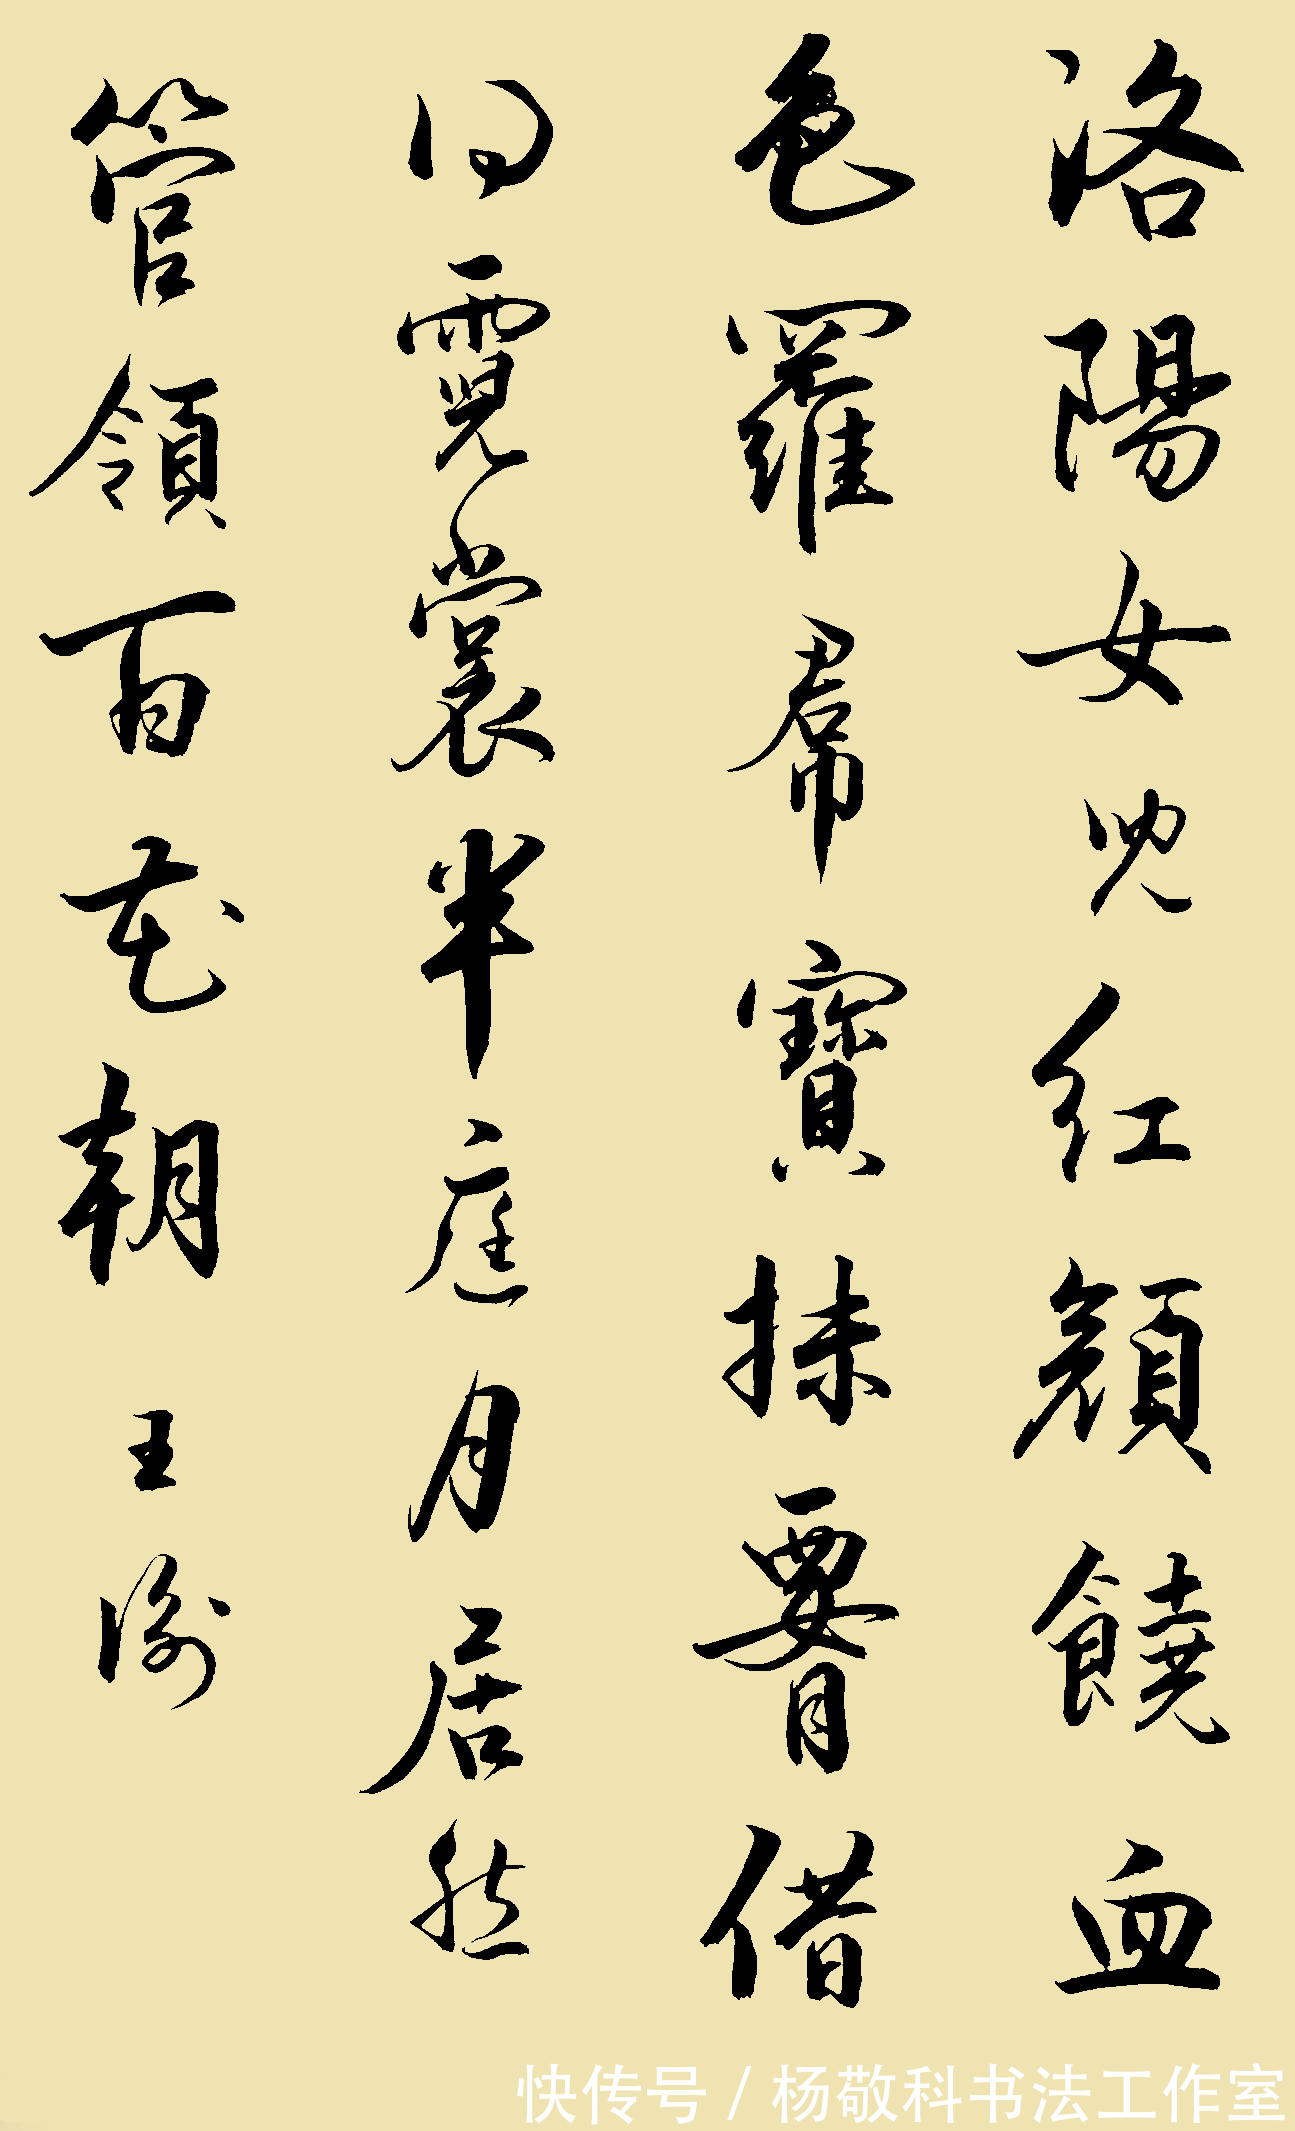 洛陽女兒红顏饒血
色羅帬寶抹署借
得霓裳半庭月居然
管領百花朝王渝
快传号/杨敬科书法工作室